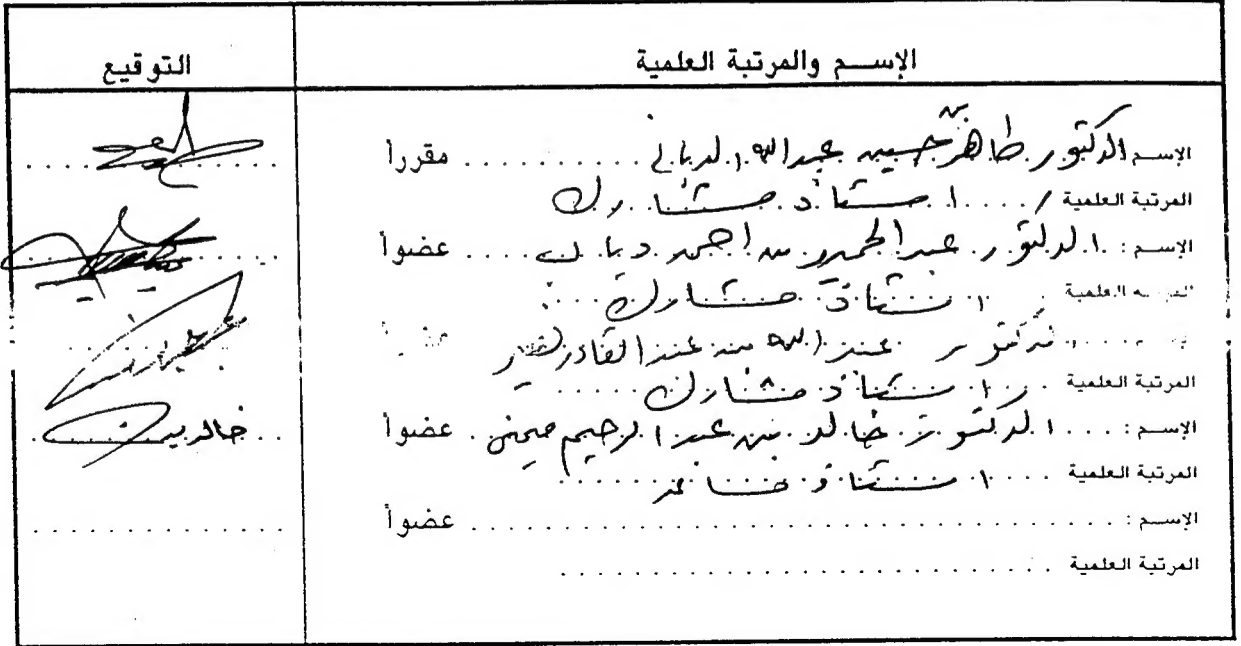 الإسـم والمرتبة العلمية
التوقيع
الإسـم الدكتور طاهر بن حسين عبدالله . . . . . . . . . . مقرراً
المرتبة العلمية / . . . . استاذ مشارك
الإسـم : . الدكتور عبدالحميد بن احمد دياب . . . . عضواً
العلمية . . استاذ مشارك . . . .
الدكتور عبدالله بن عبدالقادر
المرتبة العلمية . . . استاذ مشارك . . . . .
الإسـم : . . . . الدكتور خالد بن عبدالرحيم ميمني . عضواً
خالد
المرتبة العلمية . . . . استاذ مساعد . . . . . .
الإسـم : . . . . . . . . . . . . . . . . . . . . . . . . . . . عضواً
المرتبة العلمية . . . . . . . . . . . . . . . . . . . . . . . . . . .